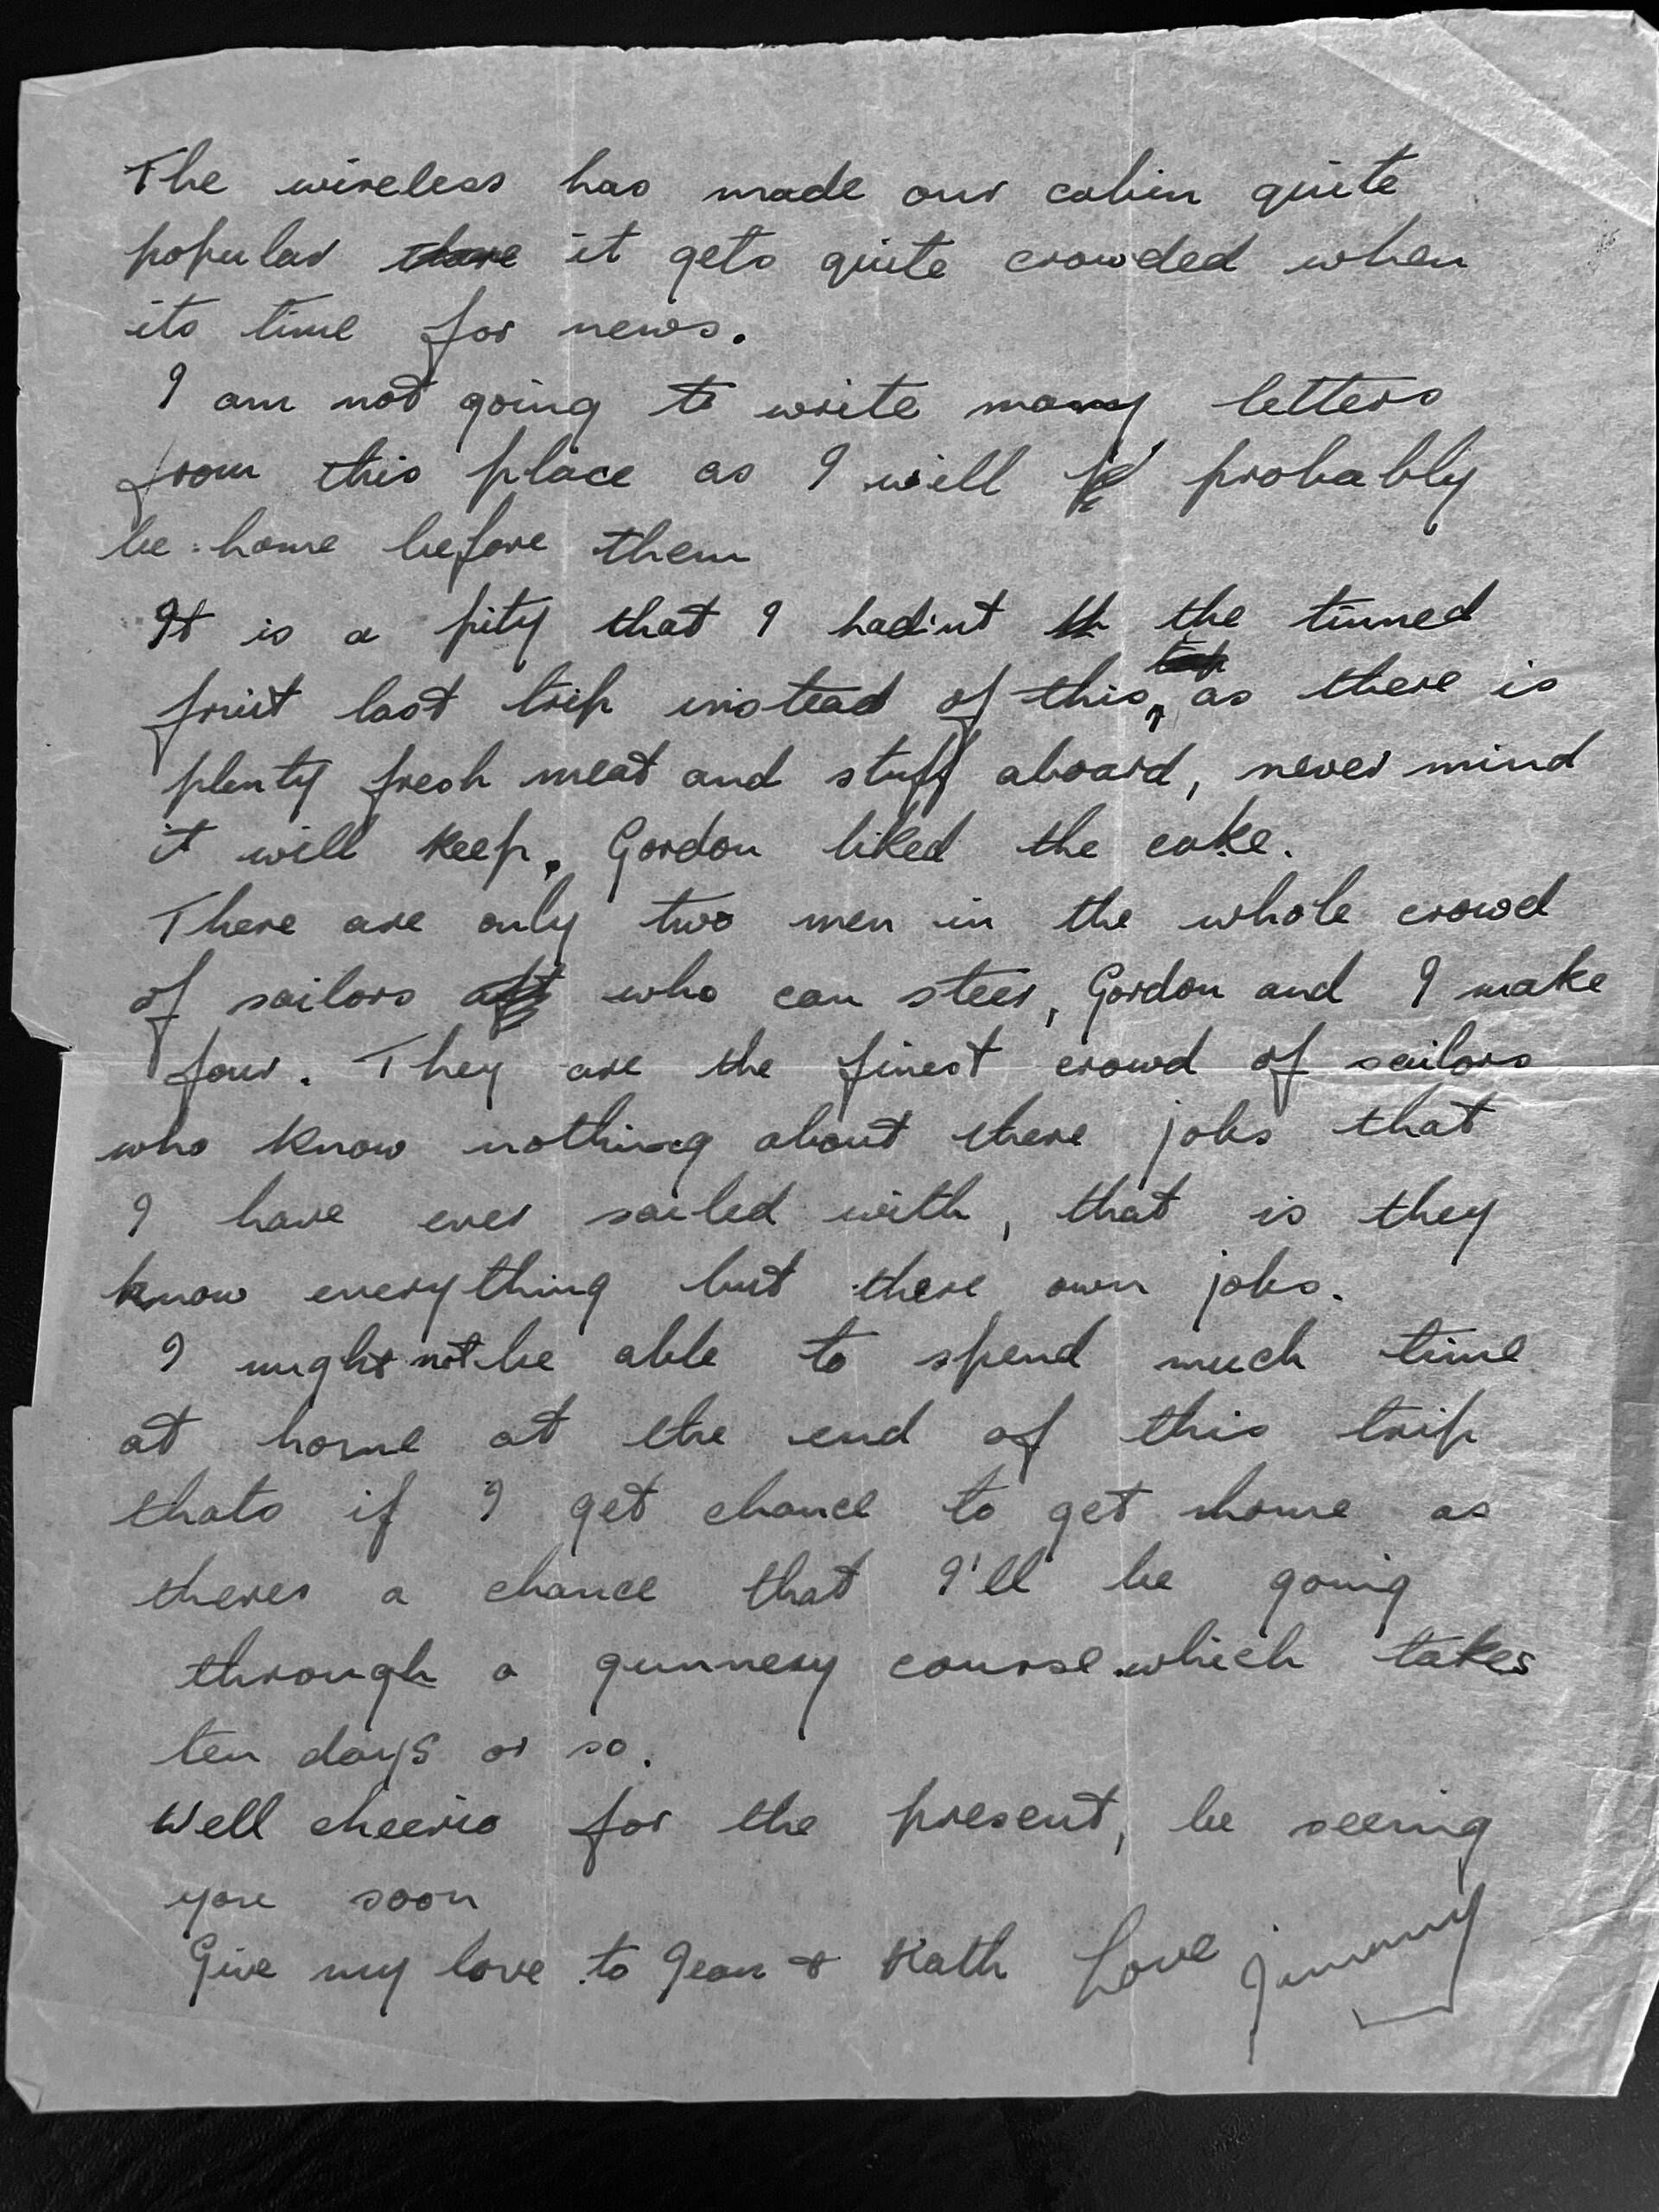 The wireless has made our cabin quite
popular it gets quite crowded when
its time for news.
I am not going to write many letters
from this place as I will probably
be home before them
It is a pity that I had'nt the tinned
fruit last trip instead of this, as there is
plenty fresh meat and stuff aboard, never mind
it will keep. Gordon liked the cake.
There are only two men in the whole crowd
of sailors who can steer, Gordon and I make
four. They are the finest crowd of sailors
who know nothing about there jobs that
I have ever sailed with, that is they
know everything but there own jobs.
I might not be able to spend much time
at home at the end of this trip
thats if I get chance to get home as
theres a chance that I'll be going
through a gunnery course which takes
ten days or so.
Well cheerio for the present, be seeing
you soon
Give my love to Jean & Kath Love Jimmy